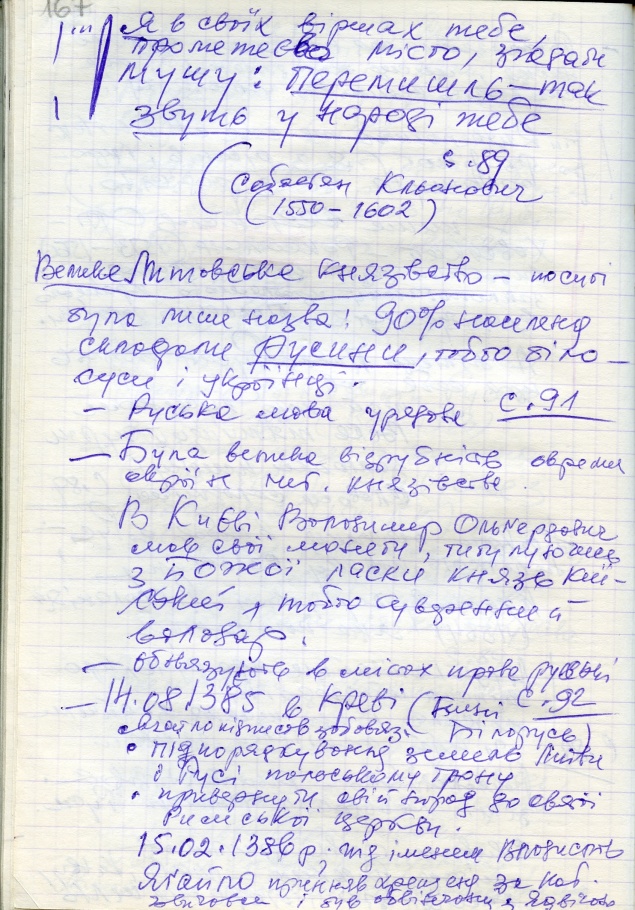 167
Я в своїх віршах тебе,
прометеєве місто, згадати
мушу: Перемишль – так
звуть у народі тебе
с.89
(Себастян Кльонович
(1550–1602)
Велике Литовське князівство – по суті
була лише назва! 90% населенд
складали Русини, тобто біло-
руси і українці.
– Руська мова урядова с.91
– Була велика відрубність окремих
лит. князівства.
В Києві Володимир Ольгердович
мав свої монети, титулувався
з Божої ласки князь Киї-
ський, тобто суверенний
володар.
– обов'язують в містах права руські
– 14.08.1385 в Креві (нині с.92
Ягайло підписав зобов'яз. Білорусь)
• підпорядкування земель Литви
і Русі польському трону
• привернути свій народ до святої
Римської церкви.
15.02.1386 р. під іменем Володислав
Ягайло прийняв хрещенд за кат.
звичаєм і був